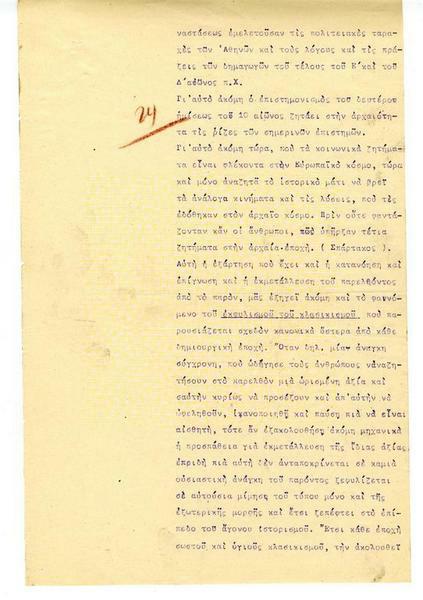 ναστάσεως ἐμελετοῦσαν τίς πολιτειακές ταρα-
χές τῶν Ἀθηνῶν καί τούς λόγους καί τίς πρά-
ξεις τῶν δημαγωγῶν τοῦ τέλους τοῦ Ε΄καί τοῦ
Δ΄αἰῶνος π.Χ.
24
Γι'αὐτό ἀκόμη ὁ ἐπιστημονισμός τοῦ δευτέρου
ἡμίσεως τοῦ 10 αἰῶνος ζητάει στήν ἀρχαιότη-
τα τίς ρίζες τῶν σημερινῶν ἐπιστημῶν.
Γι'αὐτό ἀκόμη τώρα, πού τά κοινωνικά ζητήμα-
τα εἶναι φλέκοντα στήν Εὐρωπαϊκό κόσμο, τώρα
καί μόνο ἀναζητᾶ τό ἱστορικό μάτι νά βρεῖ
τά ἀνάλογα κινήματα καί τίς λύσεις, πού τίς
ἐδόθηκαν στόν ἀρχαῖο κόσμο. Πρίν οὔτε φαντά-
ζονταν κἄν οἱ ἄνθρωποι, πώς ὑπῆρξαν τέτια
ζητήματα στήν ἀρχαία ἐποχή. ( Σπάρτακος ).
Αὐτή ἡ ἐξάρτηση πού ἔχει καί ἡ κατανόηση καί
ἐπίγνωση καί ἡ ἐκμετάλλευση τοῦ παρελθόντος
ἀπό τό παρόν, μᾶς ἐξηγεῖ ἀκόμη καί τό φαινό-
μενο τοῦ ἐκφυλισμοῦ τοῦ κλασικισμοῦ, πού πα-
ρουσιάζεται σχεδόν κανονικά ὕστερα ἀπό κάθε
δημιουργική ἐποχή. Ὅταν δηλ. μία ἀνάγκη
σύγχρονη, πού ὡδήγησε τούς ἀνθρώπους νἀναζη-
τήσουν στό παρελθόν μιά ὡρισμένη ἀξία καί
σαὐτήν κυρίως νά προσέξουν καί ἀπ'αὐτήν νά
ὠφεληθοῦν, ἱκανοποιηθῆ καί παύση πιά νά εἶναι
αἰσθητή, τότε ἄν ἐξακολουθήση ἀκόμη μηχανικά
ἡ προσπάθεια γιά ἐκμετάλλευση τῆς ἴδιας ἀξίας
ἐπειδή πιά αὐτή δέν ἀνταποκρίνεται σέ καμιά
οὐσιαστική ἀνάγκη τοῦ παρόντος ξεφυλίζεται
σέ αὐτούσια μίμηση τοῦ τύπου μόνο καί τῆς
ἐξωτερικῆς μορφῆς καί ἔτσι ξεπέφτει στό ἐπί-
πεδο τοῦ ἄγονου ἱστορισμοῦ. Ἔτσι κάθε ἐποχή
σωστοῦ καί ὑγιοῦς κλασικισμοῦ, τήν ἀκολουθεῖ